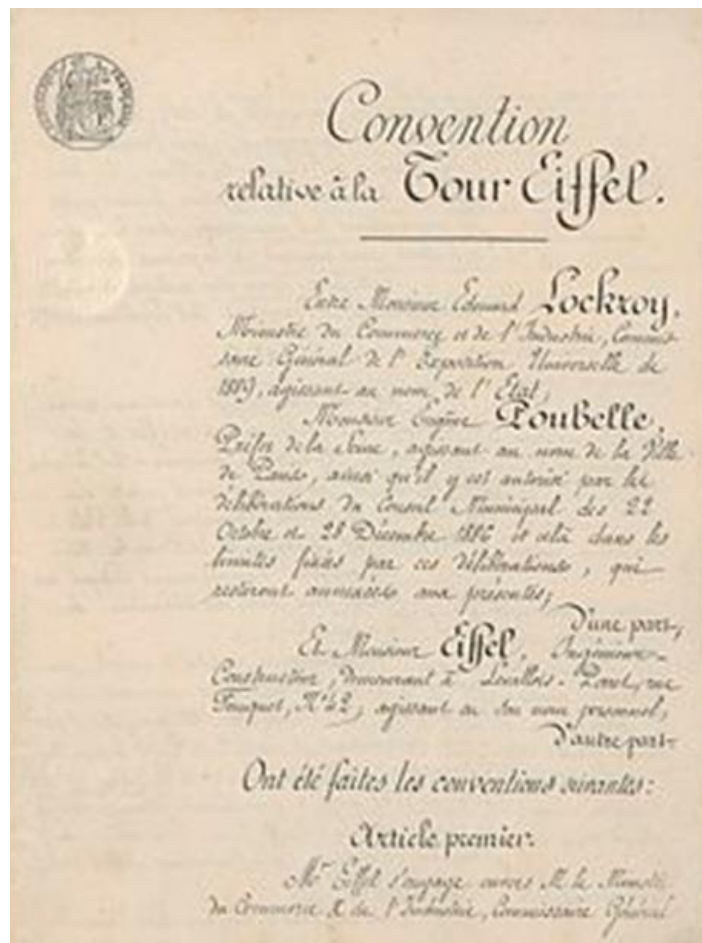 Convention
relative à la Tour Eiffel.
Entre Monsieur Edouard Lockroy,
Ministre du Commerce et de l'Industrie, Commis-
saire Général de l'Exposition Universelle de
1889, agissant au nom de l'Etat,
Monsieur Eugène Poubelle,
Préfet de la Seine, agissant au nom de la Ville
de Paris, ainsi qu'il y est autorisé par les
délibérations du Conseil Municipal des 22
Octobre et 28 Décembre 1886 et cela dans les
limites fixées par ces délibérations, qui
resteront annexées aux présentes;
D'une part,
Et Monsieur Eiffel, Ingénieur-
Constructeur, demeurant à Levallois-Perret, rue
Fouquet, N° 42, agissant en son nom personnel,
D'autre part
Ont été faites les conventions suivantes:
Article premier.
Mr Eiffel s'engage envers M. le Ministre
du Commerce & de l'Industrie, Commissaire Général